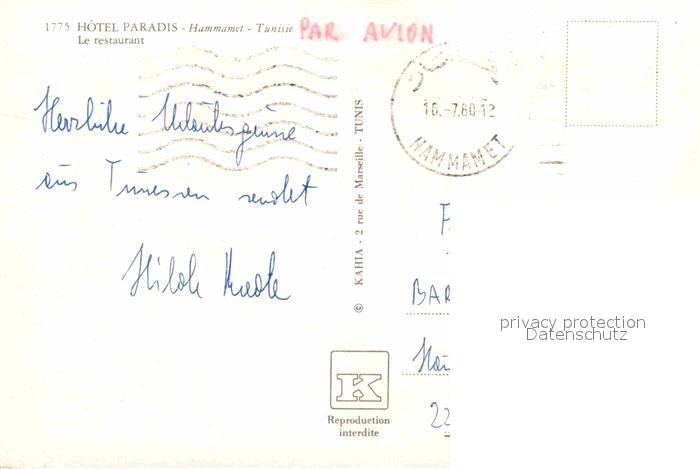 1775 HÔTEL PARADIS - Hammamet - Tunisie
Le restaurant
PAR AVION
16.-7.80-12
HAMMAMET
Herzliche Urlaubsgrüsse
aus Tunesien sendet
Hilde
© KAHIA - 2 rue de Marseille - TUNIS
F
BAR
22
K
Reproduction
interdite
privacy protection
Datenschutz